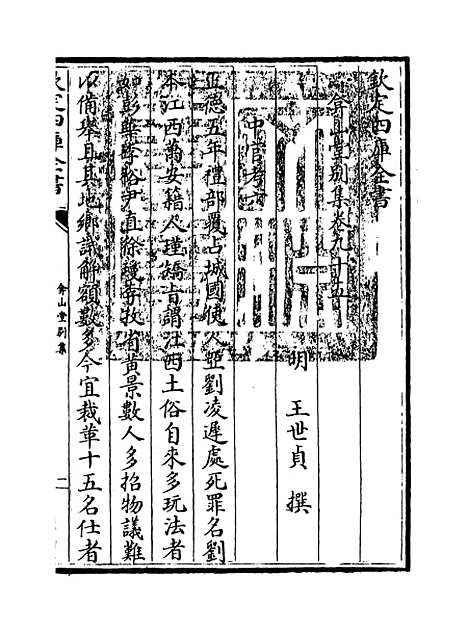 欽定四庫全書
弇山堂別集卷九十五
明 王世貞 撰
中官考六
正德五年禮部覆占城國使人亞劉凌遲處死罪名劉
本江西萬安籍人瑾矯旨謂江西土俗自來多玩法者
如彭華李裕尹直徐瓊李孜省黃景數人多招物議難
以備舉且其地鄉試解額數多今宜裁革十五名仕者
欽定四庫全書
弇山堂別集
二